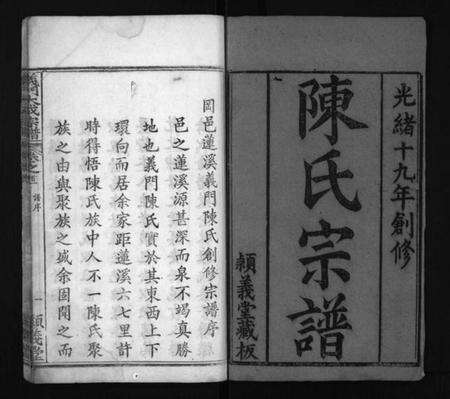 光緒十九年創修
陳氏宗譜
賴義堂藏板
岡邑蓮溪義門陳氏創修宗譜序
邑之蓮溪源甚深而泉不竭真勝
地也義門陳氏實於其東西上下
環向而居余家距蓮溪六七里許
時得悟陳氏族中人不一陳氏聚
族之由與聚族之盛余固聞之而
宗譜
譜序
一
義堂